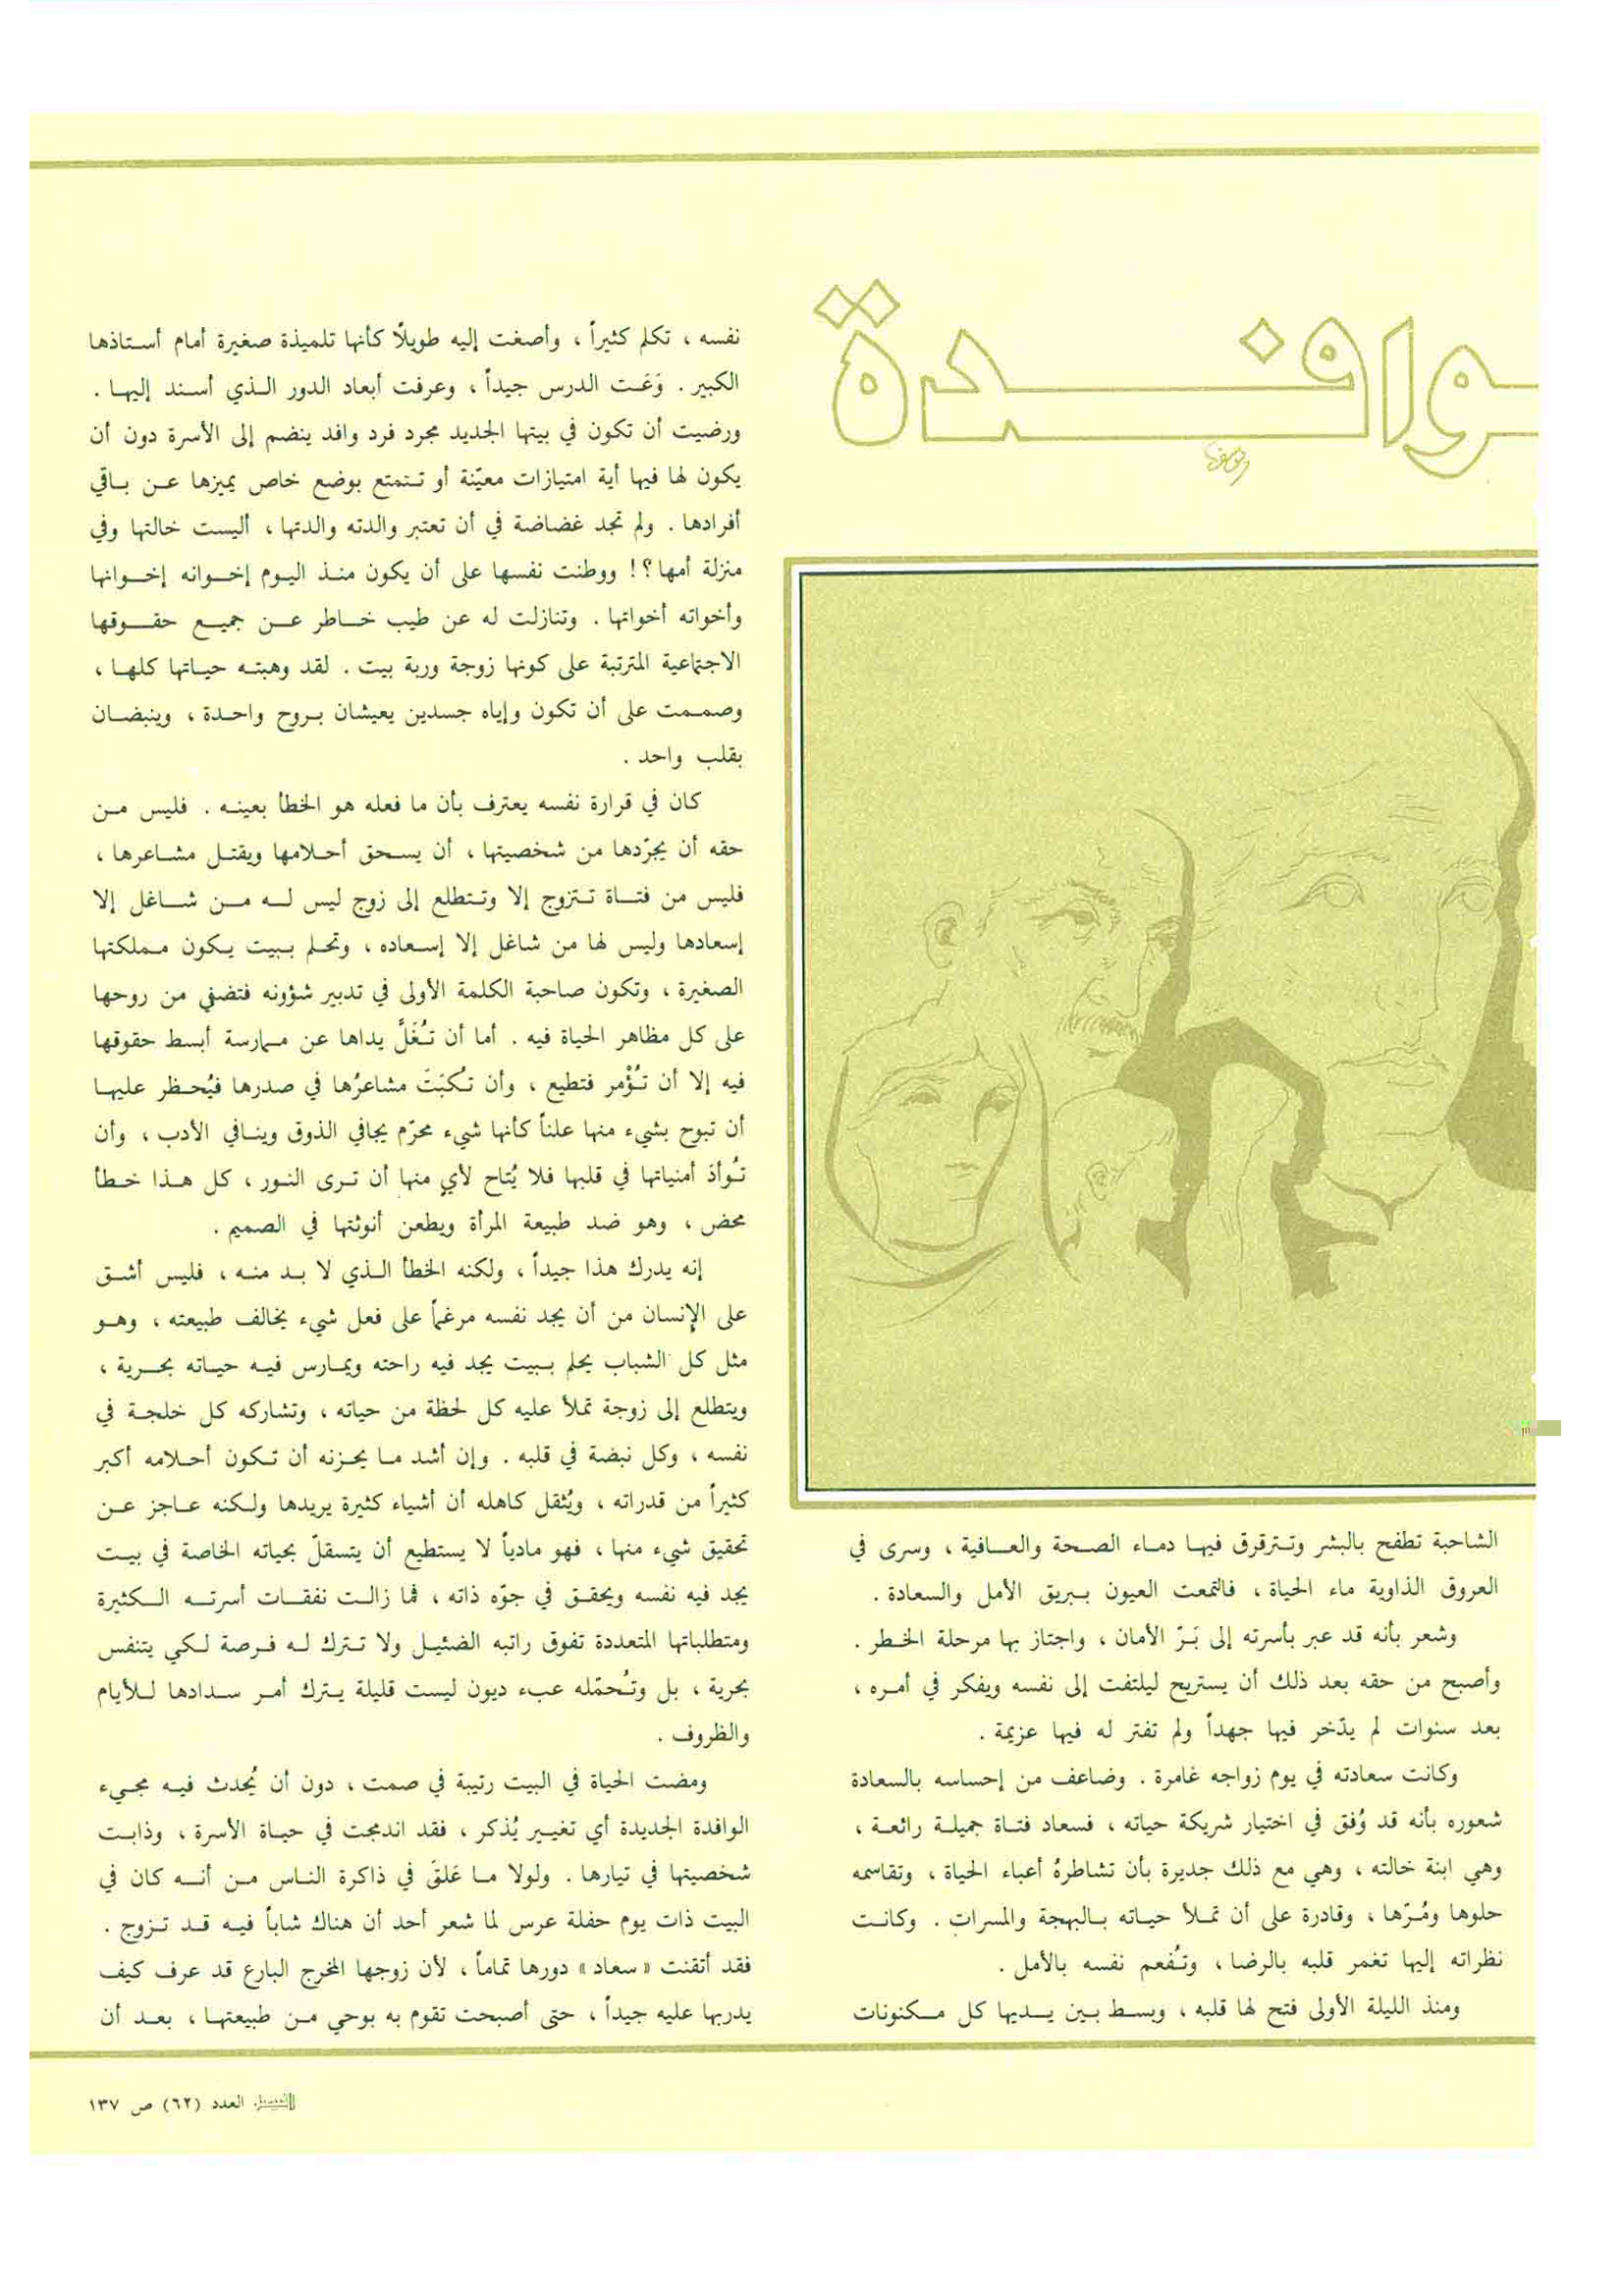 ـوافـدة
الشاحبة تطفح بالبشر وتترقرق فيها دماء الصحة والعافية ، وسرى في
العروق الذاوية ماء الحياة ، فالتمعت العيون ببريق الأمل والسعادة .
وشعر بأنه قد عبر بأسرته إلى بَرّ الأمان ، واجتاز بها مرحلة الخطر .
وأصبح من حقه بعد ذلك أن يستريح ليلتفت إلى نفسه ويفكر في أمره ،
بعد سنوات لم يدّخر فيها جهداً ولم تفتر له فيها عزيمة .
وكانت سعادته في يوم زواجه غامرة . وضاعف من إحساسه بالسعادة
شعوره بأنه قد وُفق في اختيار شريكة حياته ، فسعاد فتاة جميلة رائعة ،
وهي ابنة خالته ، وهي مع ذلك جديرة بأن تشاطرهُ أعباء الحياة ، وتقاسمه
حلوها ومُرّها ، وقادرة على أن تملأ حياته بالبهجة والمسرات . وكانت
نظراته إليها تغمر قلبه بالرضا ، وتُفعم نفسه بالأمل .
ومنذ الليلة الأولى فتح لها قلبه ، وبسط بين يديها كل مكنونات
نفسه ، تكلم كثيراً ، وأصغت إليه طويلًا كأنها تلميذة صغيرة أمام أستاذها
الكبير . وَعَت الدرس جيداً ، وعرفت أبعاد الدور الذي أسند إليها .
ورضيت أن تكون في بيتها الجديد مجرد فرد وافد ينضم إلى الأسرة دون أن
يكون لها فيها أية امتيازات معيّنة أو تتمتع بوضع خاص يميزها عن باقي
أفرادها . ولم تجد غضاضة في أن تعتبر والدته والدتها ، أليست خالتها وفي
منزلة أمها ؟! ووطنت نفسها على أن يكون منذ اليوم إخوانه إخوانها
وأخواته أخواتها . وتنازلت له عن طيب خاطر عن جميع حقوقها
الاجتماعية المترتبة على كونها زوجة وربة بيت . لقد وهبته حياتها كلها ،
وصممت على أن تكون وإياه جسدين يعيشان بروح واحدة ، وينبضان
بقلب واحد .
كان في قرارة نفسه يعترف بأن ما فعله هو الخطأ بعينه . فليس من
حقه أن يجرّدها من شخصيتها ، أن يسحق أحلامها ويقتل مشاعرها ،
فليس من فتاة تتزوج إلا وتتطلع إلى زوج ليس له من شاغل إلا
إسعادها وليس لها من شاغل إلا إسعاده ، وتحلم ببيت يكون مملكتها
الصغيرة ، وتكون صاحبة الكلمة الأولى في تدبير شؤونه فتضفي من روحها
على كل مظاهر الحياة فيه . أما أن تُغَلَّ يداها عن ممارسة أبسط حقوقها
فيه إلا أن تُؤْمر فتطيع ، وأن تُكبَتَ مشاعرُها في صدرها فيُحظر عليها
أن تبوح بشيء منها علناً كأنها شيء محرّم يجافي الذوق وينافي الأدب ، وأن
تُوأدَ أمنياتها في قلبها فلا يُتاح لأي منها أن ترى النور ، كل هذا خطأ
محض ، وهو ضد طبيعة المرأة ويطعن أنوثتها في الصميم .
إنه يدرك هذا جيداً ، ولكنه الخطأ الذي لا بد منه ، فليس أشق
على الإنسان من أن يجد نفسه مرغماً على فعل شيء يخالف طبيعته ، وهو
مثل كل الشباب يحلم ببيت يجد فيه راحته ويمارس فيه حياته بحرية ،
ويتطلع إلى زوجة تملأ عليه كل لحظة من حياته ، وتشاركه كل خلجة في
نفسه ، وكل نبضة في قلبه . وإن أشد ما يحزنه أن تكون أحلامه أكبر
كثيراً من قدراته ، ويُثقل كاهله أن أشياء كثيرة يريدها ولكنه عاجز عن
تحقيق شيء منها ، فهو مادياً لا يستطيع أن يتسقلّ بحياته الخاصة في بيت
يجد فيه نفسه ويحقق في جوّه ذاته ، فما زالت نفقات أسرته الكثيرة
ومتطلباتها المتعددة تفوق راتبه الضئيل ولا تترك له فرصة لكي يتنفس
بحرية ، بل وتُحمّله عبء ديون ليست قليلة يترك أمر سدادها للأيام
والظروف .
ومضت الحياة في البيت رتيبة في صمت ، دون أن يُحدث فيه مجيء
الوافدة الجديدة أي تغيير يُذكر ، فقد اندمجت في حياة الأسرة ، وذابت
شخصيتها في تيارها . ولولا ما عَلقَ في ذاكرة الناس من أنه كان في
البيت ذات يوم حفلة عرس لما شعر أحد أن هناك شاباً فيه قد تزوج .
فقد أتقنت « سعاد » دورها تماماً ، لأن زوجها المخرج البارع قد عرف كيف
يدربها عليه جيداً ، حتى أصبحت تقوم به بوحي من طبيعتها ، بعد أن
الفيصل العدد (٦٢) ص ١٣٧